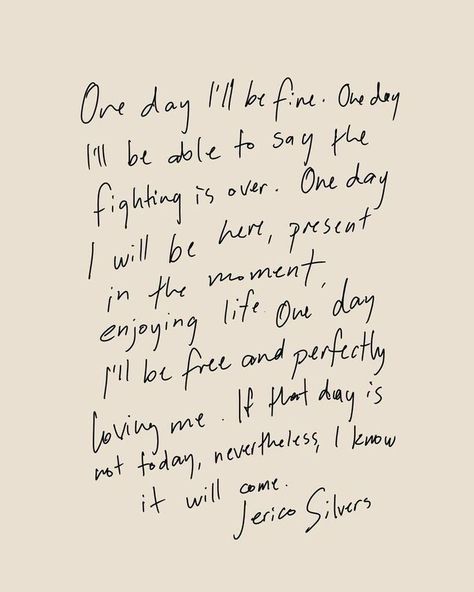 One day I'll be fine. One day
I'll be able to say the
fighting is over. One day
I will be here, present
in the moment,
enjoying life. One day
I'll be free and perfectly
loving me. If that day is
not today, nevertheless, I know
it will come.
Jerico Silvers